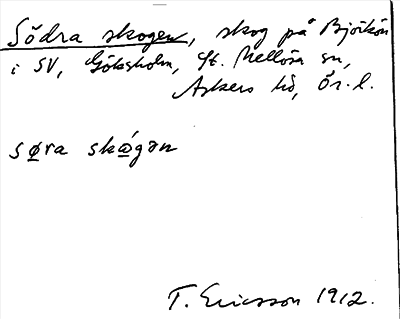 Södra skogen, skog på Björkön
i SV, Göksholm, St. Mellösa sn,
Askers hd, Ör. l.
søra skógan
T. Ericsson 1912.